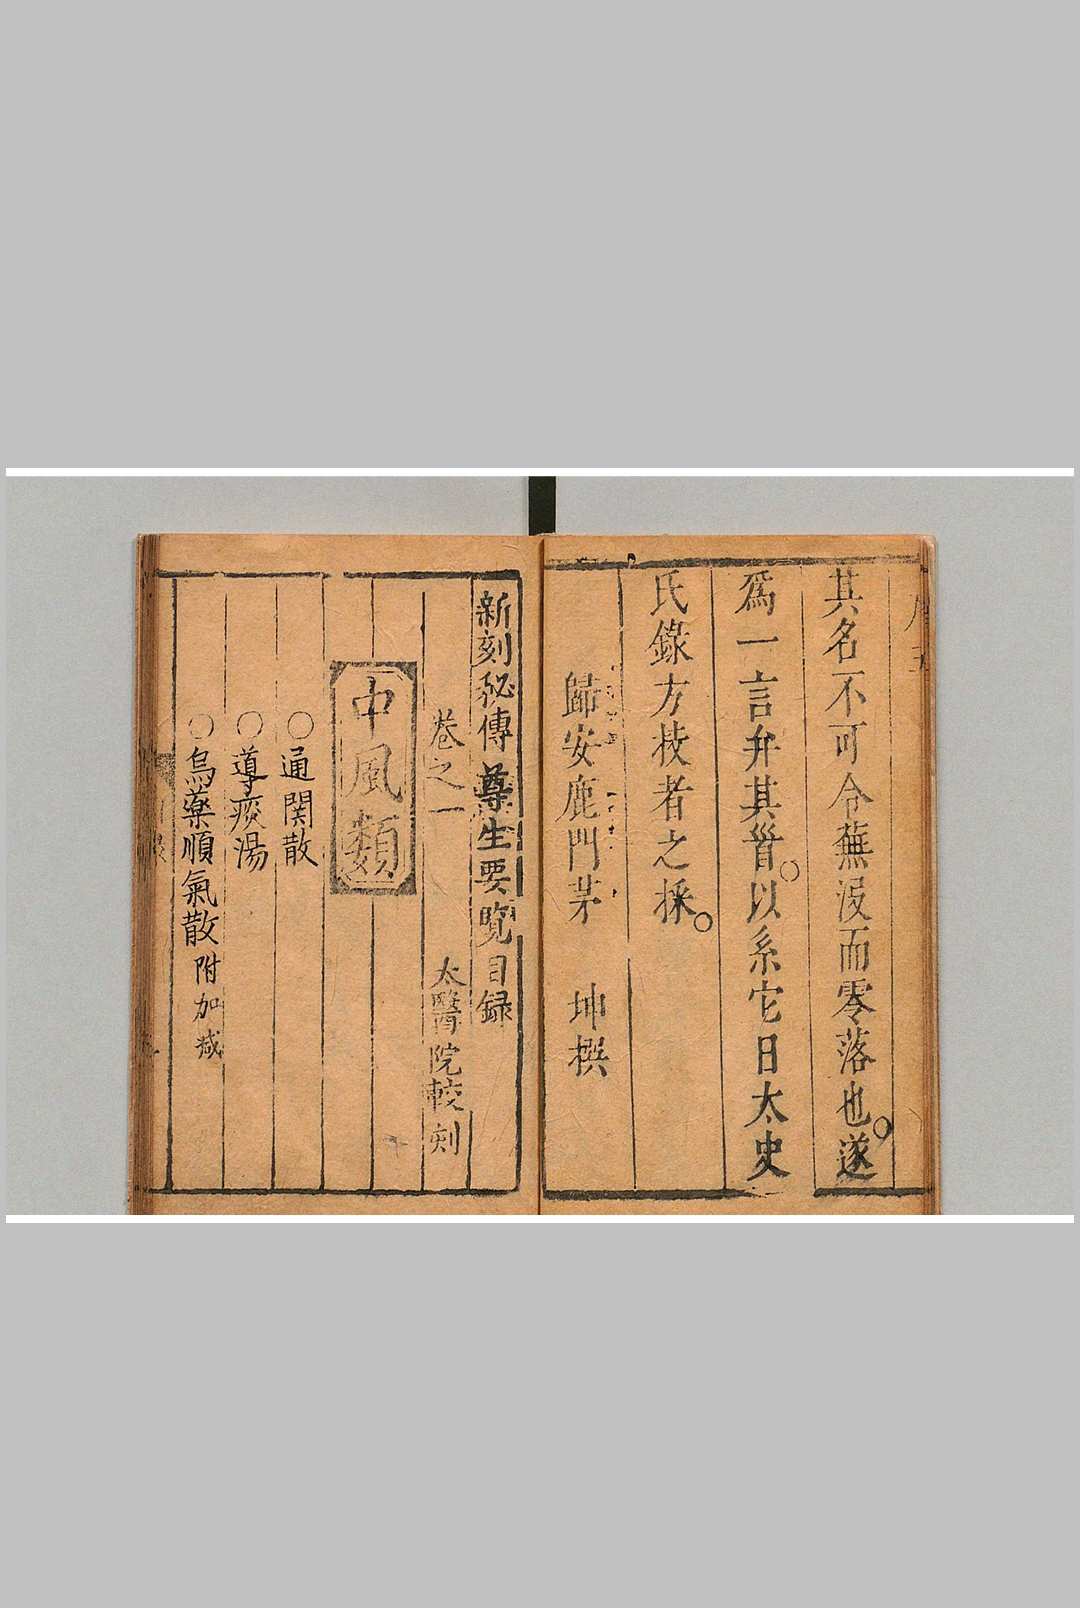 其名不可令蕪沒而零落也遂
爲一言弁其首以系它日太史
氏錄方技者之採
歸安鹿門茅 坤撰
新刻秘傳尊生要覽目録
巻之一 太醫院較刻
中風類
○通関散
○導痰湯
○烏藥順氣散附加减